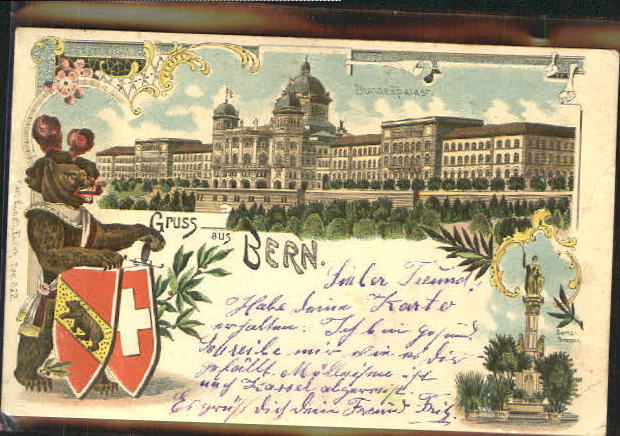 Bundespalast.
GRUSS
AUS
BERN.
Lieber Freund!
Habe deine Karte
erhalten. Ich bin gesund
schreibe mir wie es dir
gefällt. ist
nach Kassel abgereist.
Es grüß dich dein Freund Fritz.
Berna-
Brunnen